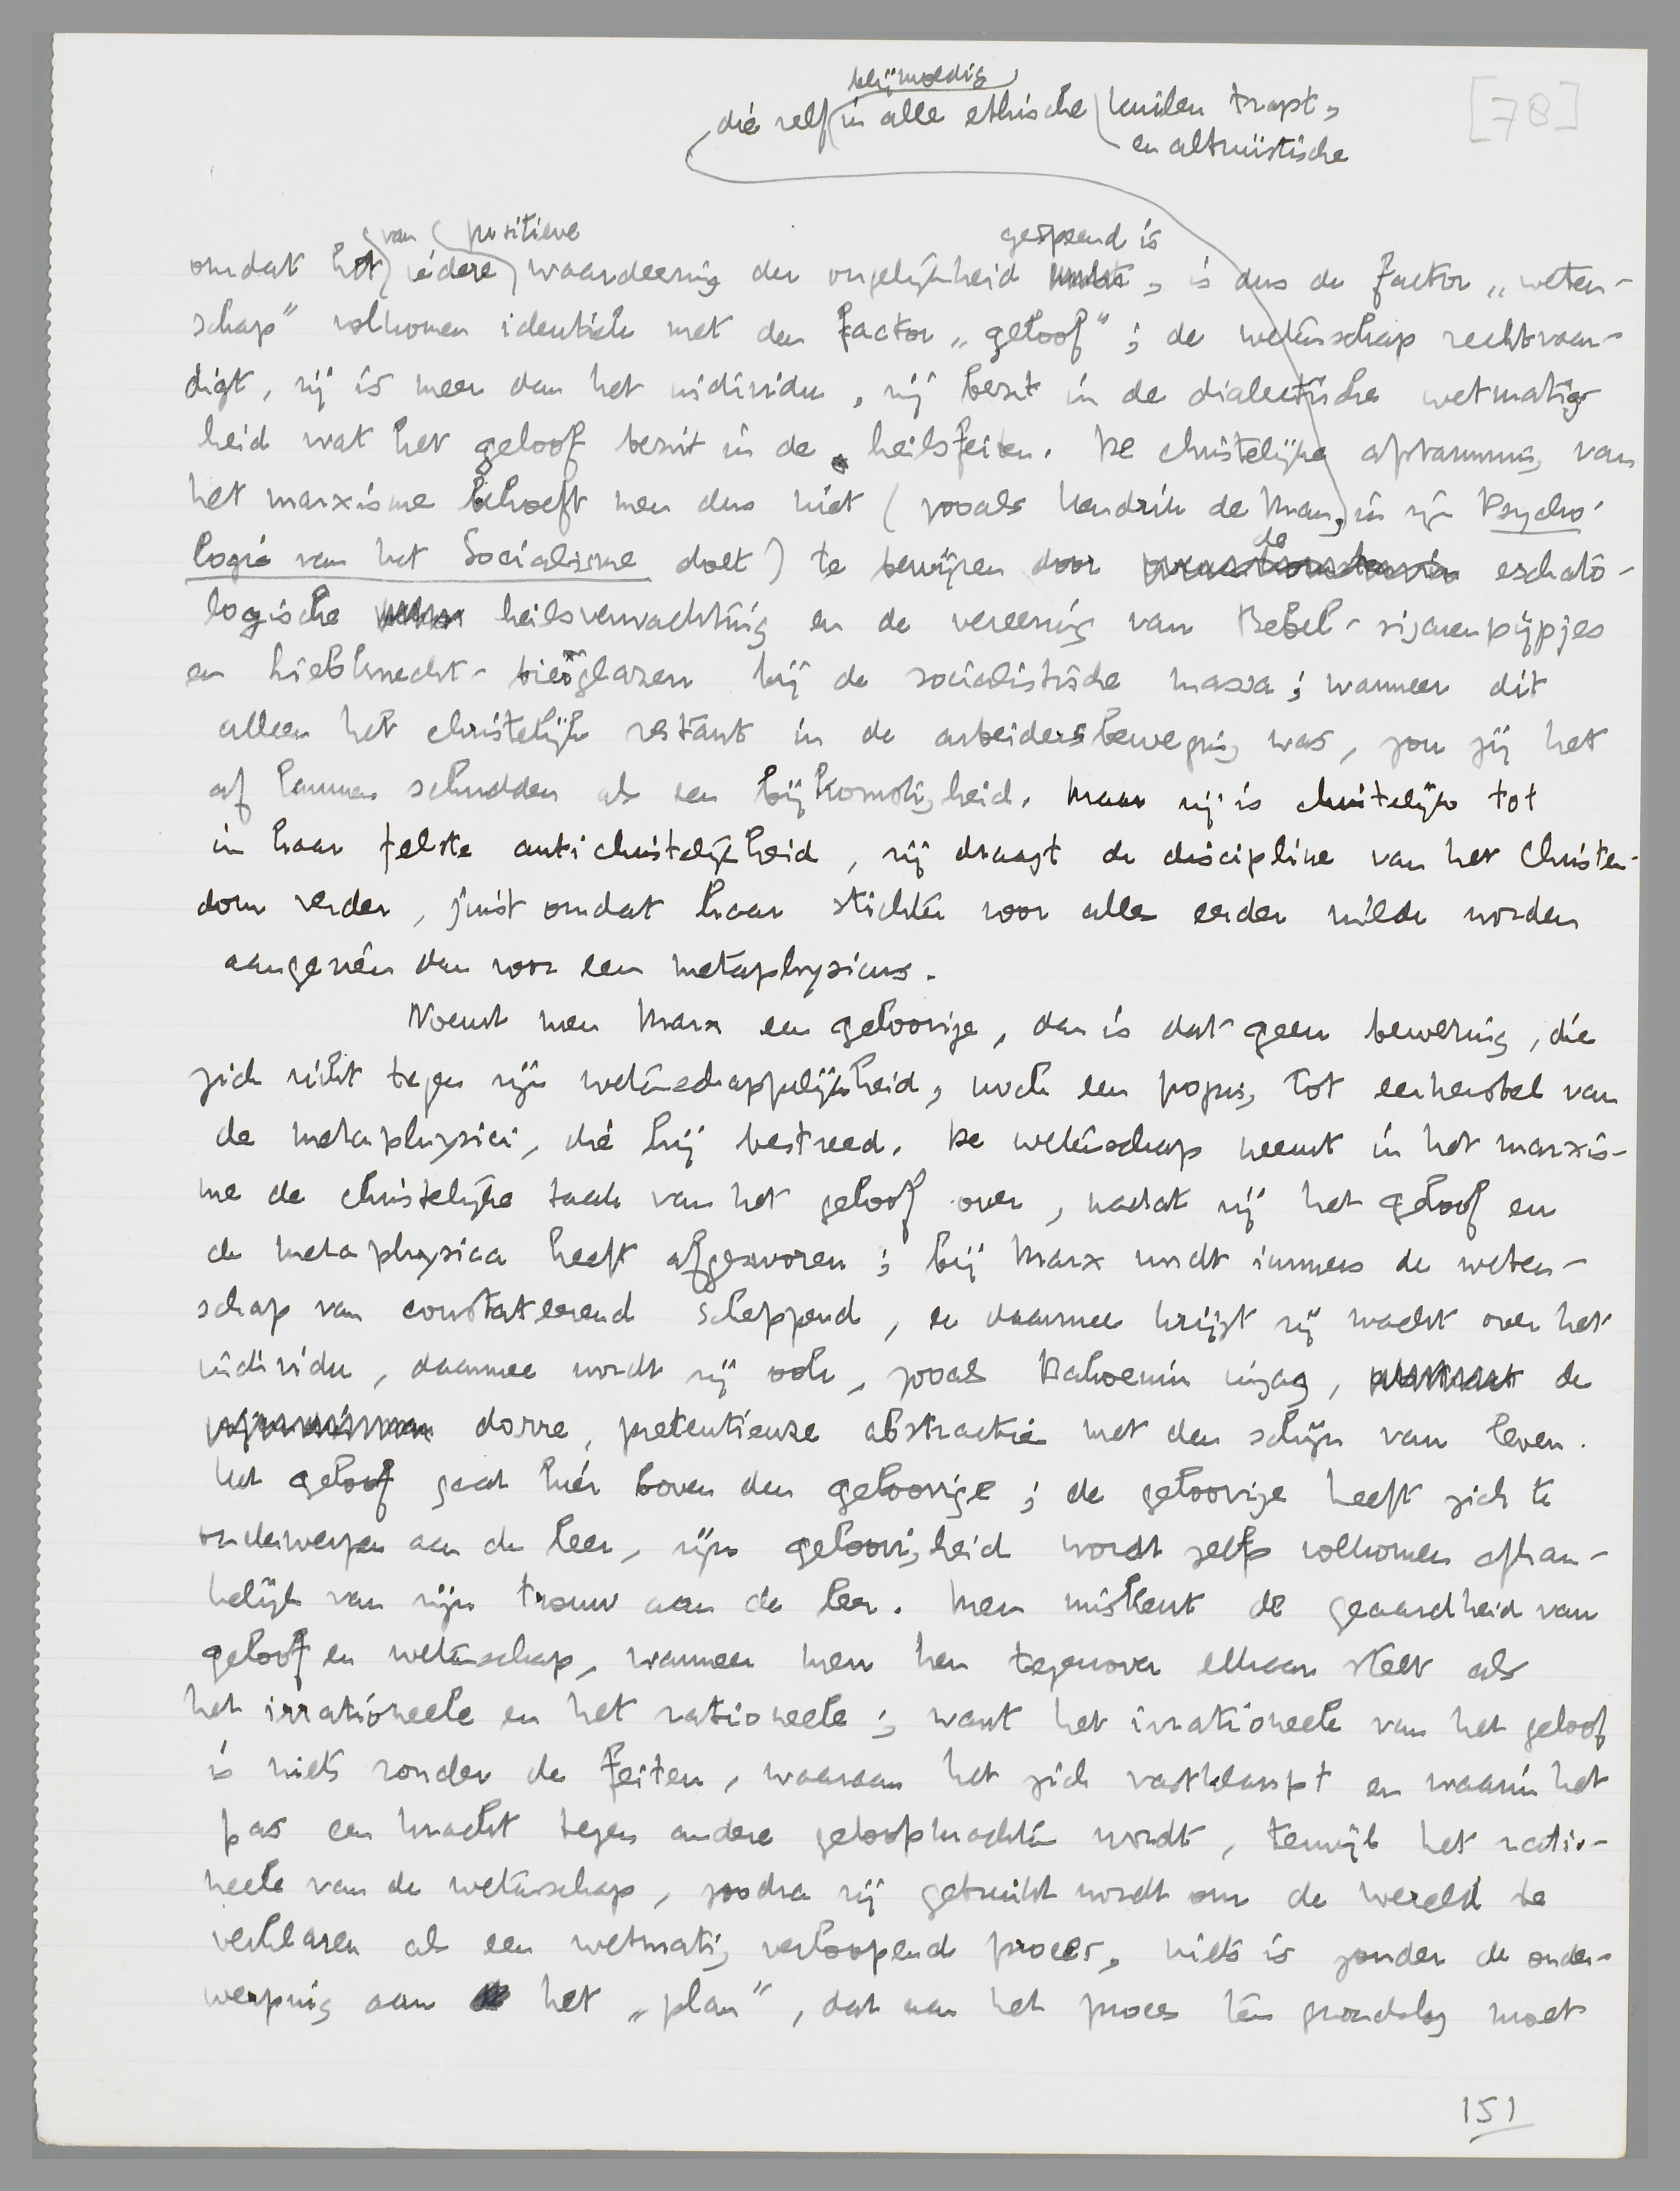 blijmoedig
die zelf in alle ethische kuilen trapt,
en altruïstische
[78]
van positieve gespeend is
omdat het iedere waardeering der ongelijkheid , is dus de factor „weten-
schap" volkomen identiek met den factor „geloof"; de wetenschap rechtvaar-
digt, zij is meer dan het individu, zij bezit in de dialectische wetmatig-
heid wat het geloof bezit in de heilsfeiten. De christelijke afstamming van
het marxisme behoeft men dus niet (zooals Hendrik de Man, in zijn Psycho-
logie van het Socialisme doet) te bewijzen door de eschato-
logische heilsverwachting en de vereering van Bebel-sigarenpijpjes
en Liebknecht-bierglazen bij de socialistische massa; wanneer dit
alleen het christelijk restant in de arbeidersbeweging was, zou zij het
af kunnen schudden als een bijkomstigheid. Maar zij is christelijk tot
in haar felste antichristelijkheid, zij draagt de discipline van het Christen-
dom verder, juist omdat haar stichter voor alles eerder wilde worden
aangezien dan voor een metaphysicus.
Noemt men Marx een geloovige, dan is dat geen bewering, die
zich richt tegen zijn wetenschappelijkheid, noch een poging tot eerherstel van
de metaphysici, die hij bestreed. De wetenschap neemt in het marxis-
me de christelijke taak van het geloof over, nadat zij het geloof en
de metaphysica heeft afgezworen; bij Marx wordt immers de weten-
schap van constateerend scheppend, en daarmee krijgt zij macht over het
individu, daarmee wordt zij ook, zooals Bakoenin inzag, de
dorre, pretentieuze abstractie met den schijn van leven.
Het geloof gaat hier boven den geloovige; de geloovige heeft zich te
onderwerpen aan de leer, zijn geloovigheid wordt zelfs volkomen afhan-
kelijk van zijn trouw aan de leer. Men miskent de geaardheid van
geloof en wetenschap, wanneer men hen tegenover elkaar stelt als
het irrationeele en het rationeele; want het irrationeele van het geloof
is niets zonder de feiten, waaraan het zich vastklampt en waarin het
pas een kracht tegen andere geloofskrachten wordt, terwijl het ratio-
neele van de wetenschap, zoodra zij gebruikt wordt om de wereld te
verklaren als een wetmatig verloopend proces, niets is zonder de onder-
werping aan het „plan", dat aan het proces ten grondslag moet
151